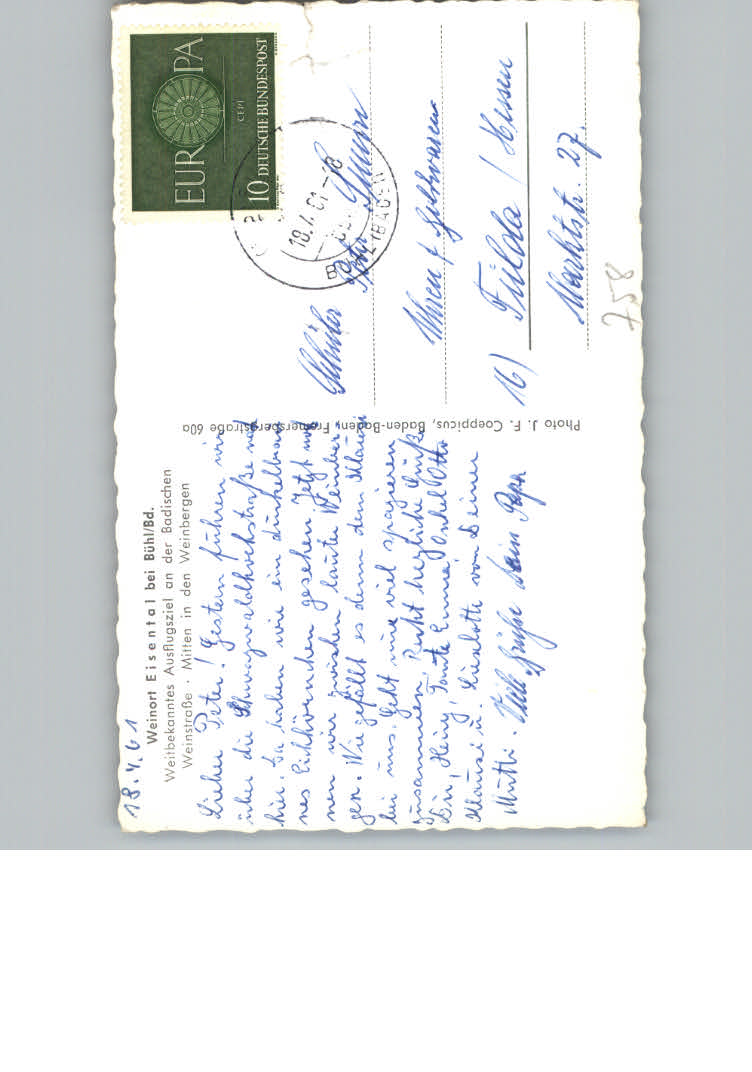 18.4.61
Weinort Eisental bei Bühl/Bd.
Weitbekanntes Ausflugsziel an der Badischen
Weinstraße · Mitten in den Weinbergen
Lieber Peter! Gestern fuhren wir
über die Schwarzwaldhochstraße nach
hier. Da haben wir ein dunkelbrau-
nes Eichhörnchen gesehen. Jetzt woh-
nen wir zwischen lauter Weinber-
gen. Wie gefällt es denn dem Mausi
bei uns. Geht nur viel spazieren
zusammen. Recht herzliche Grüße
Dir, Heinz, Tante Emmel, Onkel Otto
Mausi u. Liselotte von Deiner
Mutti. Viele Grüße Dein Papa
Photo J. F. Coeppicus, Baden-Baden, Fremersbergstraße 60a
EUROPA
CEPT
10 DEUTSCHE BUNDESPOST
18.4.61-18
Schüler
Peter
Uhren & Goldwaren
16) Fulda / Hessen
Marktstr. 27.
758